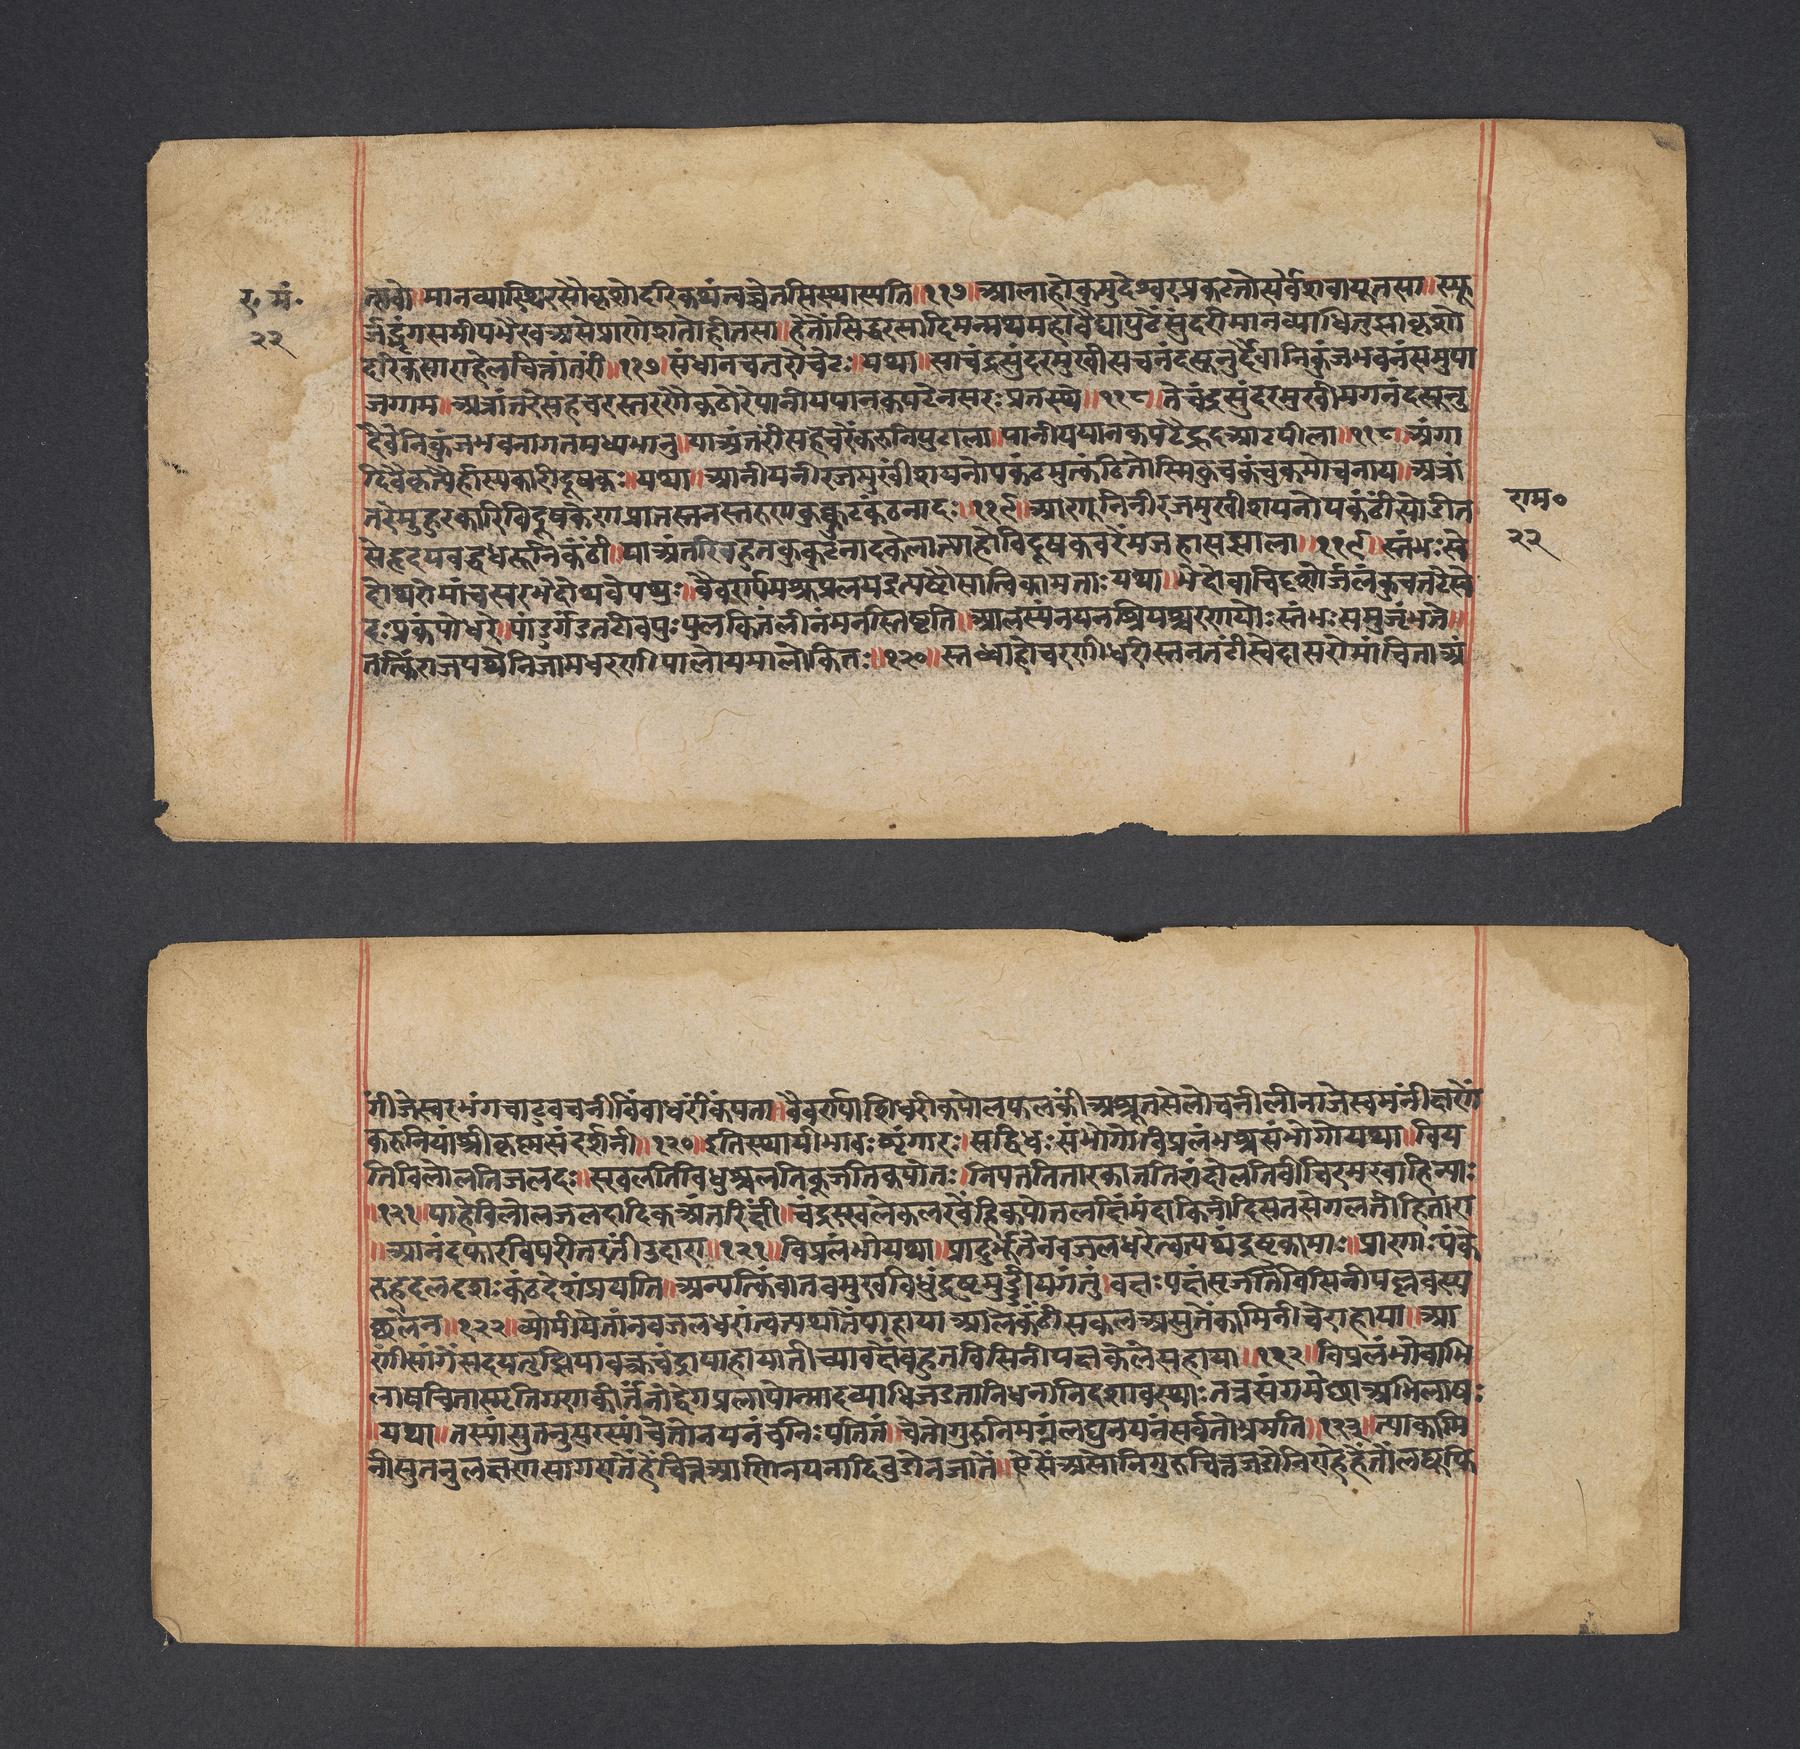 र. मं.
२२
तावो।मानव्याधिरसौकृशोदरिकथंत्वच्चेतसिस्थास्यति॥११७॥आलाहोकुमुदेश्वरप्रकटतोसर्वत्रवायूतसा॥स्फू
र्जद्भृंगसमीपभैरवअसेप्राणेशतोहीतसा॥हेतोसिद्धरसादिमन्मथमहावैद्यापुढेंसुंदरीमानव्याधितुझाकृशो
दरिकसाराहेलचित्तांतरीं॥११७॥संधानचतुरोचेटः॥यथा॥साचंद्रसुंदरमुखीसचनंदसूनुर्दैवानिकुंजभवनंसमुपा
जगाम॥अत्रांतरेसहचरस्तरणौकठोरेपानीयपानकपटेनसरःप्रतस्थे॥११८॥तेचंद्रसुंदरमुखीमगनंदसूनु
दैवेनिकुंजभवनागतमध्यभानु॥याअंतरींसहचरेंकरुनिपुटाला॥पानीयपानकपटेंह्रदआटपीला॥११८॥अंगा
दिवैकृत्यैर्हास्यकारीदूषकः॥यथा॥आनीयनीरजमुखींशयनोपकंठमुत्कंठितोस्मिकुचकंचुकमोचनाय॥अत्रां
तरेमुहुरकारिविदूषकेणप्रातस्तनस्तरुणकुक्कुटकंठनादः॥११९॥आणुनिनीरजमुखीशयनोपकंठींसोडीत
सेहृदयबद्धधरूनिकंठीं॥याअंतरिंबहुतकुक्कुटनादकेलात्याहोविदूषकवरेंमजहासझाला॥११९॥स्तंभःस्वे
दोथरोमांचस्वरभंदोथवेपथुः॥वैवर्ण्यमश्रुप्रलयइत्यष्टौसात्विकामताः॥यथा॥भेदोवाचिदृशोर्जलंकुचतटेस्वे
दःप्रकंपोधरे॥पांडुर्गंडतटीवपुःपुलकितंलीनंमनस्तिष्ठति॥आलस्यंनयनश्रियश्चरणयोःस्तंभःसमुज्जृंभते॥
तत्किंराजपथेनिजामधरणीपालोयमालोकितः॥१२०॥स्तब्धाहोचरणींधरीस्तनतटींस्वेदासरोमांचिताअं
राम०
२२
गींजेस्वरभंगचाटुवचनींबिंबाधरींकंपता॥वैवर्ण्याशिधरीकपोलफलकींअश्रूतसेलोचनींलीनाजेस्वमनींकारणें
करुनियांश्रीकृष्णसंदर्शनीं॥१२०॥इतिस्थायीभावःशृंगारः॥सद्विधःसंभोगोविप्रलंभश्चसंभोगोयथा॥विय
तिविलोलतिजलदः॥स्खलतिविधुश्चलतिकूजतिकपोतः॥निपततितारकाततिरांदोलतिवीचिरमरवाहिन्याः
॥१२१॥पाहेंविलोलजलदादिकअंतरिक्षीं॥चंद्रस्खलेकलरवेंहिकपोतलक्षीं॥मंदाकिनीहिसतसेगलतीहितारा
॥आनंदफारविपरीतरतीउदारा॥१२१॥विप्रलंभोयथा॥प्रादुर्भूतेनवजलधरेत्वत्पथंद्रष्टुकामाः॥प्राणाःपंके
रुहदलदृशःकंठदेशंप्रयांति॥अन्यत्किंवातवमुखविधुंद्रष्टुमुड्डीयगंतुं॥वक्षःपक्षंसृजतिबिसिनीपल्लवस्य
च्छलेन॥१२२॥व्योमींयेतांनवजलधरांत्वत्पथातेंपाहाया॥आलेकंठींसकलअसुतेकामिनीचेराहाया॥आ
णींसांगेंसदयतुझियावक्त्रचंद्रापाहायातीच्यावक्षेंबहुतबिसिनीपल्लकेलेंसहाया॥१२२॥विप्रलंभोवाभि
लाषचिंतास्मृतिगुणकीर्त्तनोद्वेगप्रलापोन्मादव्याधिजडतानिधनानिदशावस्थाः॥तत्रसंगमेच्छाअभिलाषः
॥यथा॥तस्यांसुतनुसरस्यांचेतोनयनंचनिःपतितं॥चेतोगुरुनिमग्नंलघुनयनंसर्वतोभ्रमति॥१२३॥त्याकामि
नीसुतनुलक्षणसागरातेंहेंचित्तआणिनयनादिबुडेनजातें॥ऐसेंअसोनिगुरुचित्तजडोनिराहेहेंतोंलघूफि